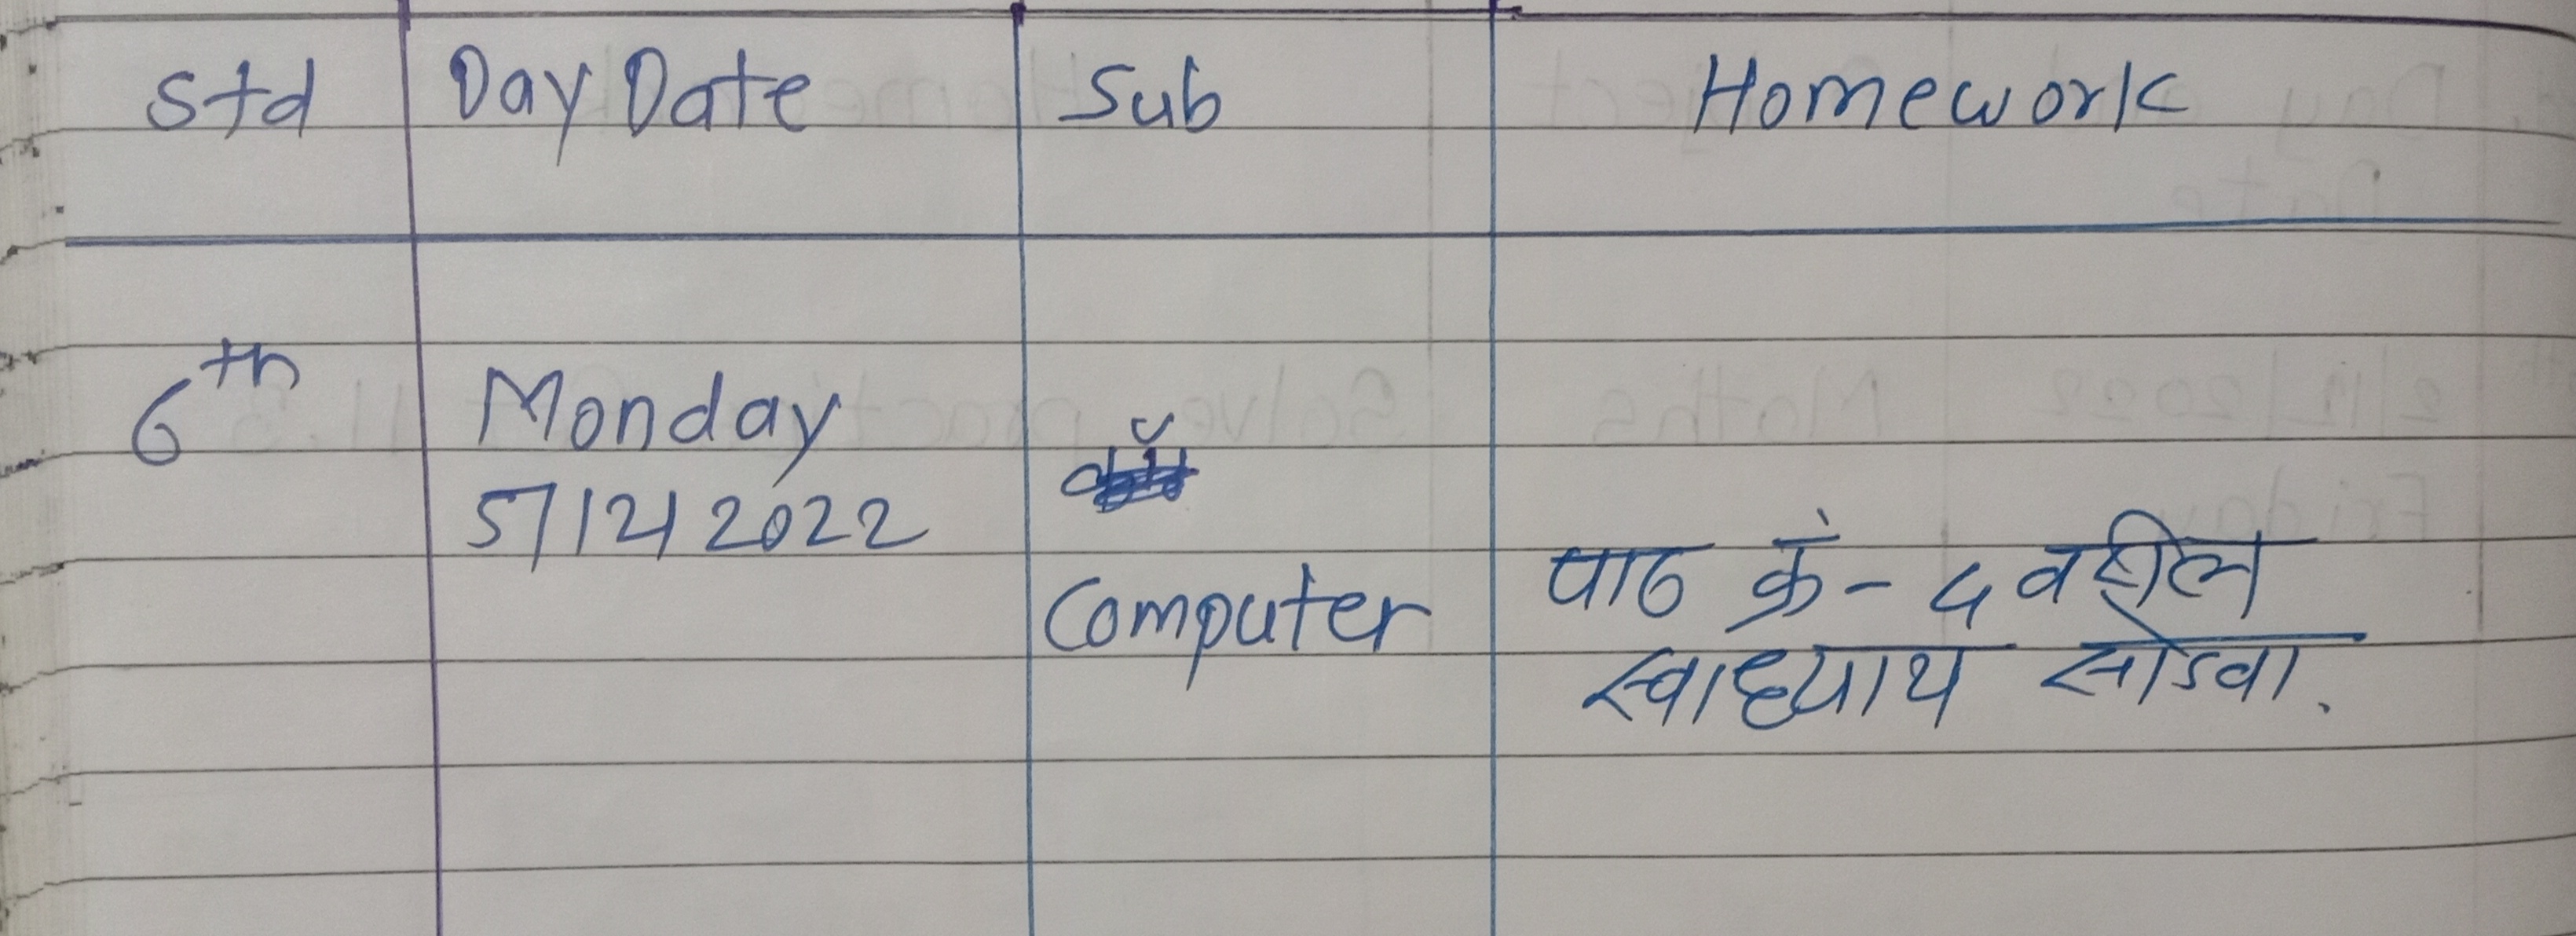 Std Day Date Sub Homework
6th Monday
5/12/2022
Computer पाठ क्रं - ५ वरील
स्वाध्याय सोडवा.